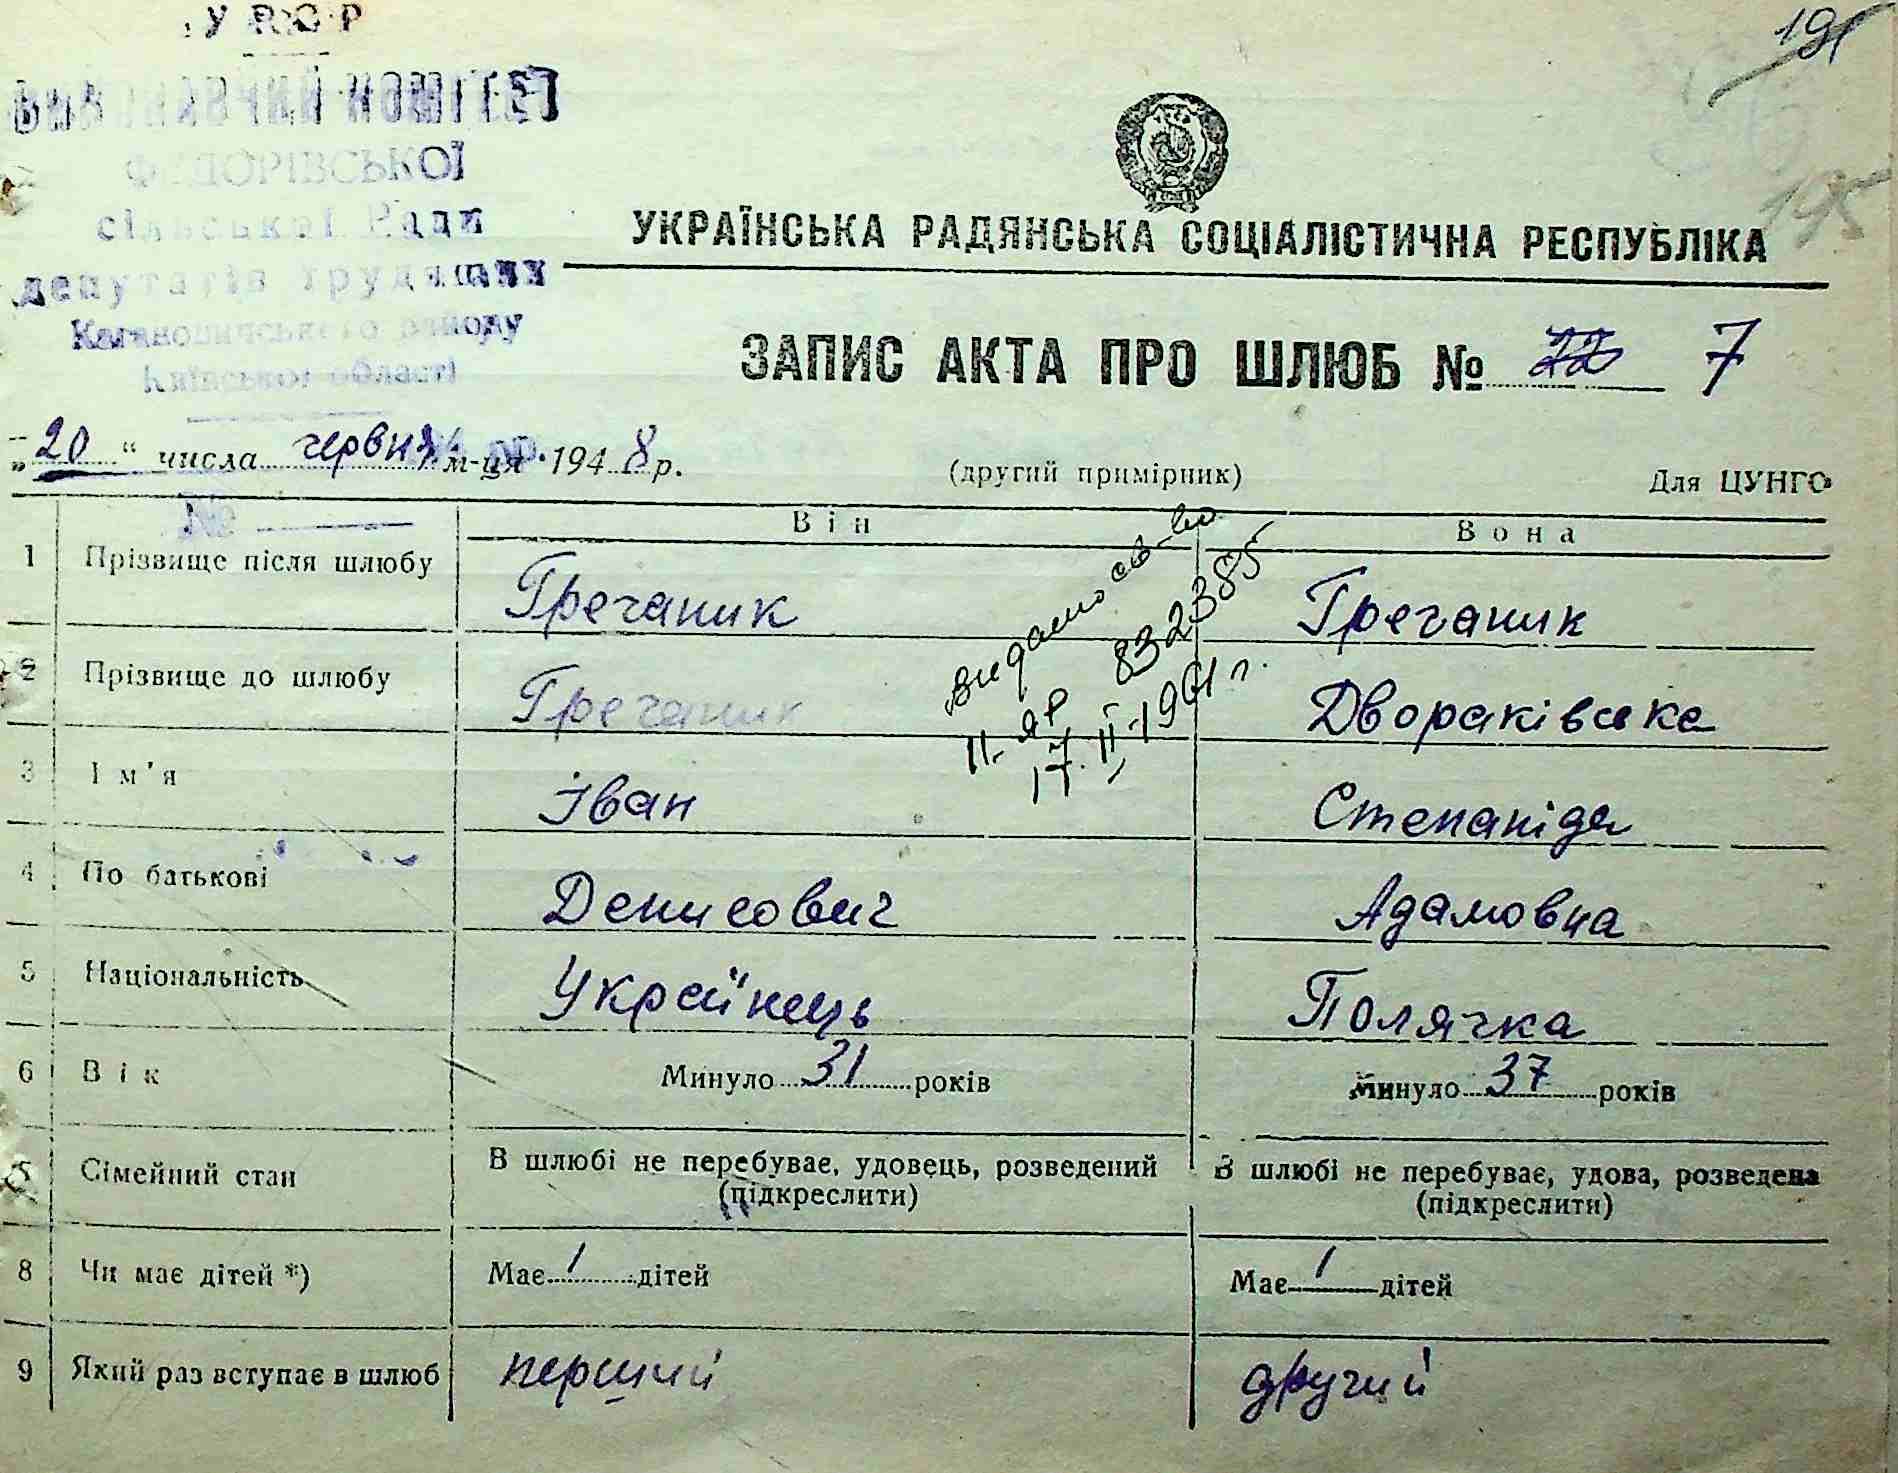 УРСР
ВИКОНАВЧИЙ КОМІТЕТ
ФЕДОРІВСЬКОЇ
сільської Ради
депутатів трудящих
Кагановичського району
Київської області
191
195
УКРАЇНСЬКА РАДЯНСЬКА СОЦІАЛІСТИЧНА РЕСПУБЛІКА
ЗАПИС АКТА ПРО ШЛЮБ № 22 7
„20“ числа червня м-ця 1948 р. (другий примірник) Для ЦУНГО
№
Він Вона
1 Прізвище після шлюбу Гречаник Гречаник
2 Прізвище до шлюбу Гречаник Двораківська
видано св-во
II-ЯР 832385
17.II-1961 г.
3 Ім'я Іван Степаніда
4 По батькові Денисович Адамовна
5 Національність Українець Полячка
6 Вік Минуло 31 років Минуло 37 років
Сімейний стан В шлюбі не перебуває, удовець, розведений В шлюбі не перебуває, удова, розведена
(підкреслити) (підкреслити)
8 Чи має дітей *) Має 1 дітей Має 1 дітей
9 Який раз вступає в шлюб перший другий